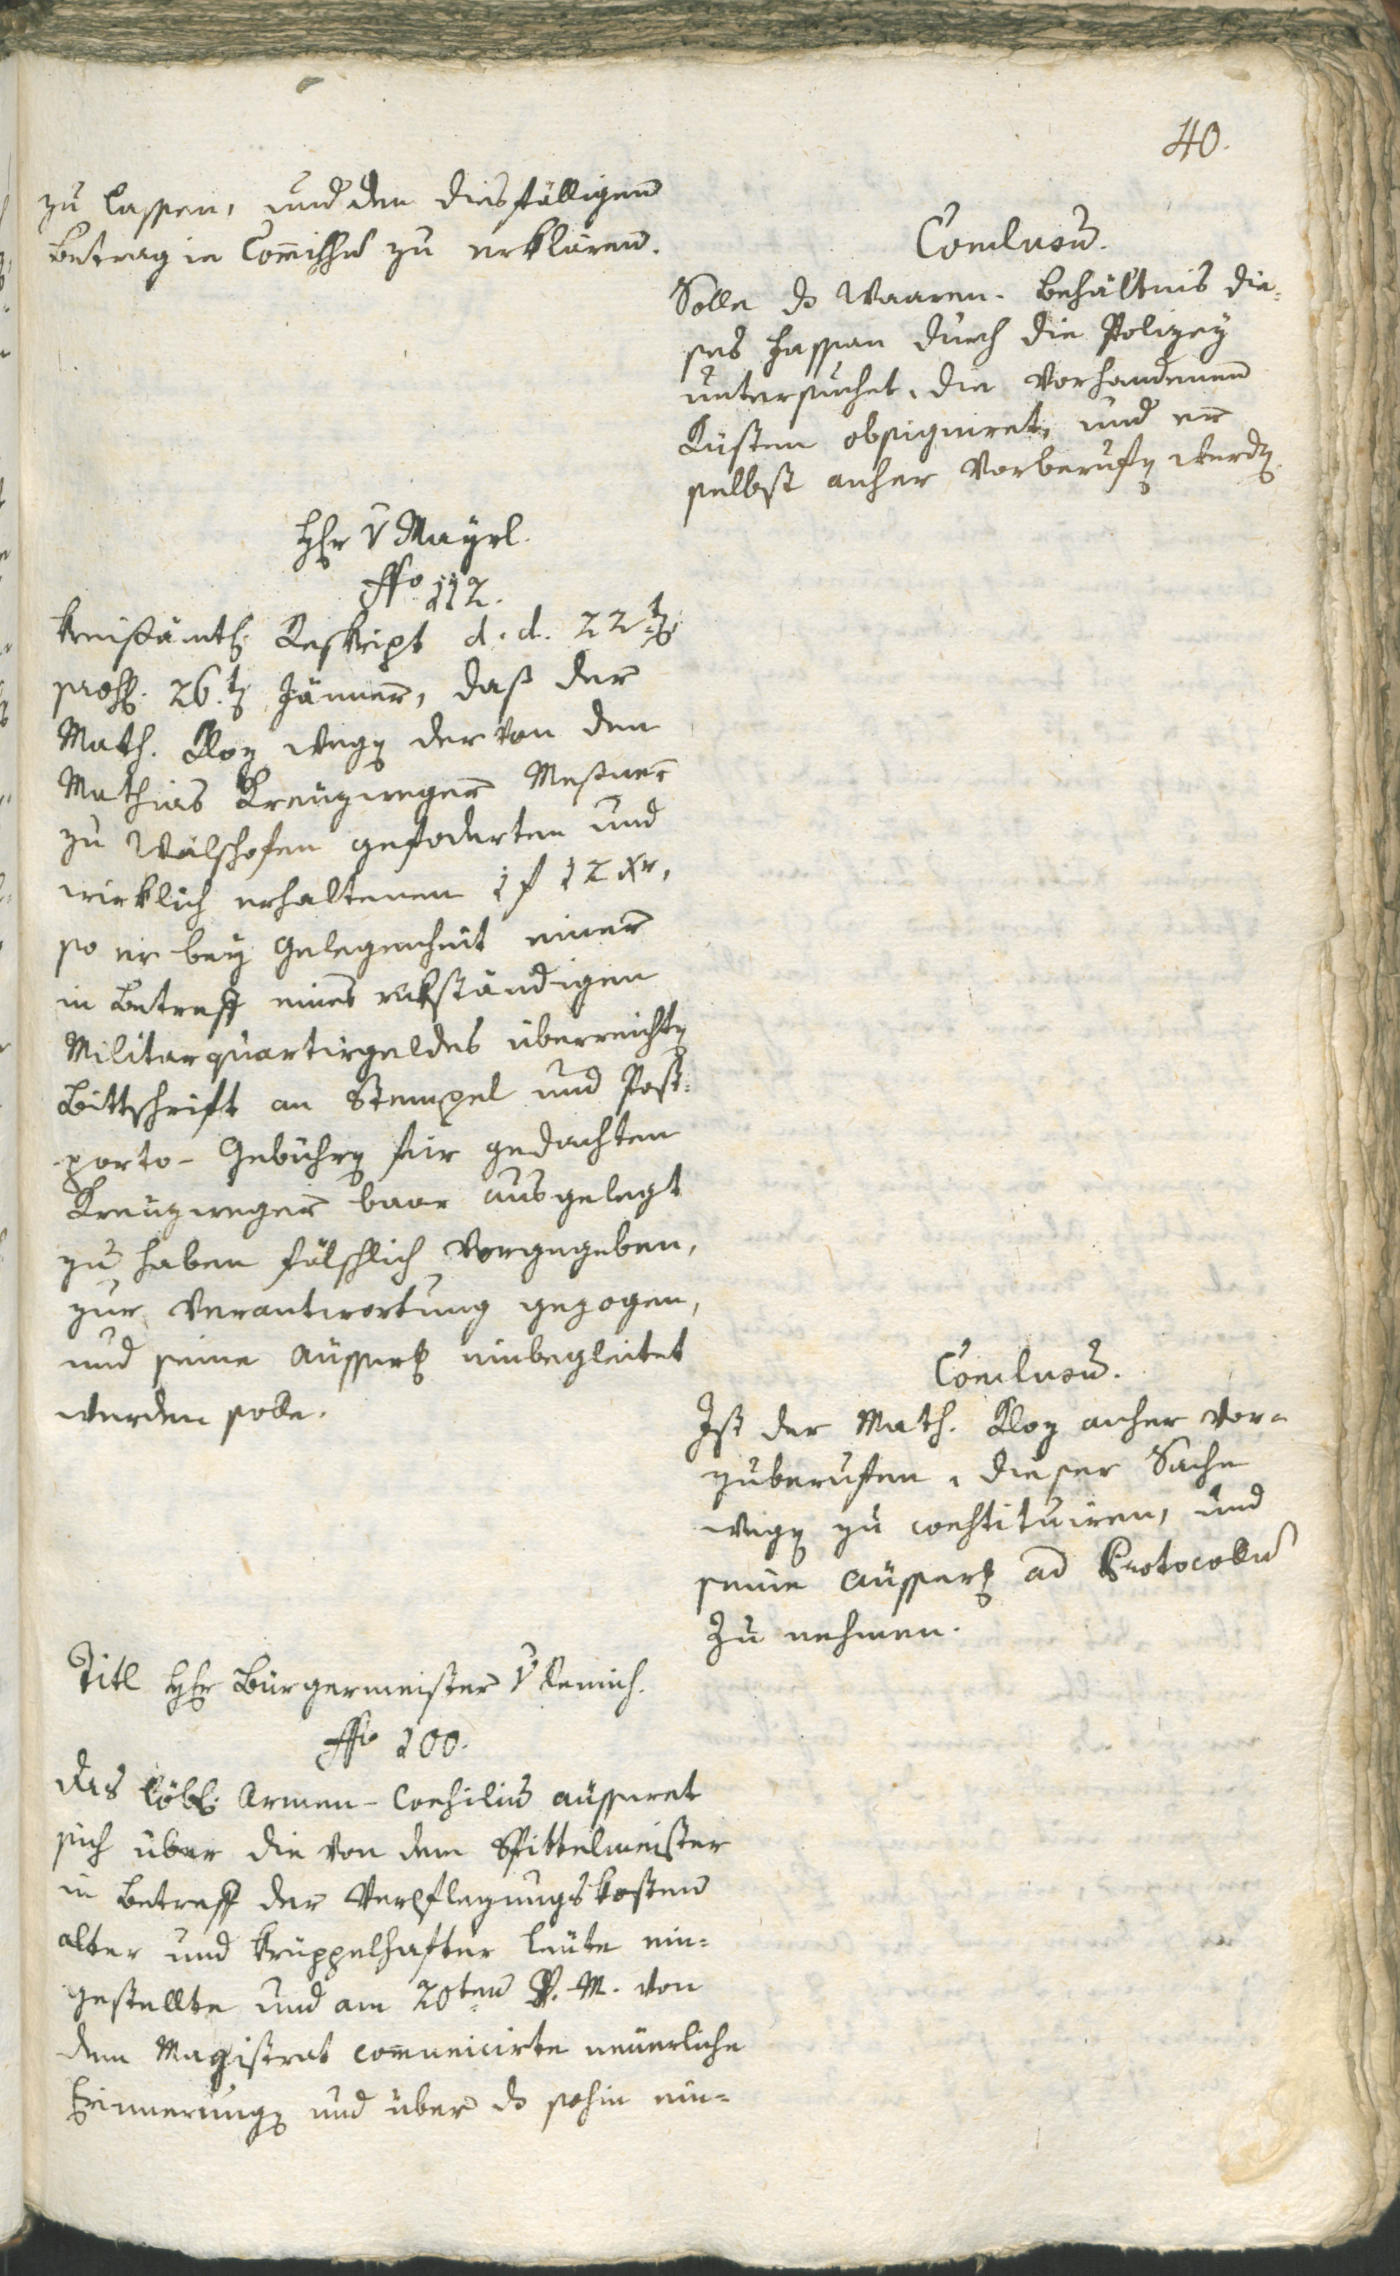 40.
zu lassen, und den diesfälligen
Betrag in Com̅issū zu erklären.
Conclusū.
Solle ds Waaren-Behältnis die-
ses Hassan durch die Polizey
untersuchet, die vorhandenen
Kiisten obsigniret, und er
selbst anher vorberufen werden
Hhr v Mayrl.
No 112.
Kreißämtl. Reskript d. d. 22t.
praes. 26.t Jänner, daß der
Math. Kloz wegen der von den
Mathias Kreuzweger Meßner
zu Wälschofen gefoderten und
wirklich erhaltenen 1 f 12 xr,
so er bey Gelegenheit einer
in Betreff eines rükständigen
Militarquartirgeldes überreichten
Bittschrift an Stempel und Post-
porto-Gebühren für gedachten
Kreuzweger baar ausgelegt
zu haben fälschlich vorgegeben,
zur Verantwortung gezogen,
und seine Äusserg einbegleitet
werden solle.
Conclusū.
Ist der Math. Kloz anher vor-
zuberufen, dieser Sache
wegen zu constituiren, und
seine Äusserg ad Protocollū
zu nehmen.
Titl Hhr Bürgermeister v Remich.
No 100.
Das löbl. Armen-Consiliū äusseret
sich über die von dem Spittelmeister
in Betreff der Verpflegungskosten
alter und krüppelhafter Leüte ein-
gestellte und am 20ten P. M. von
dem Magistrat communicirte neuerliche
Erinnerungen und über ds sohin ein-